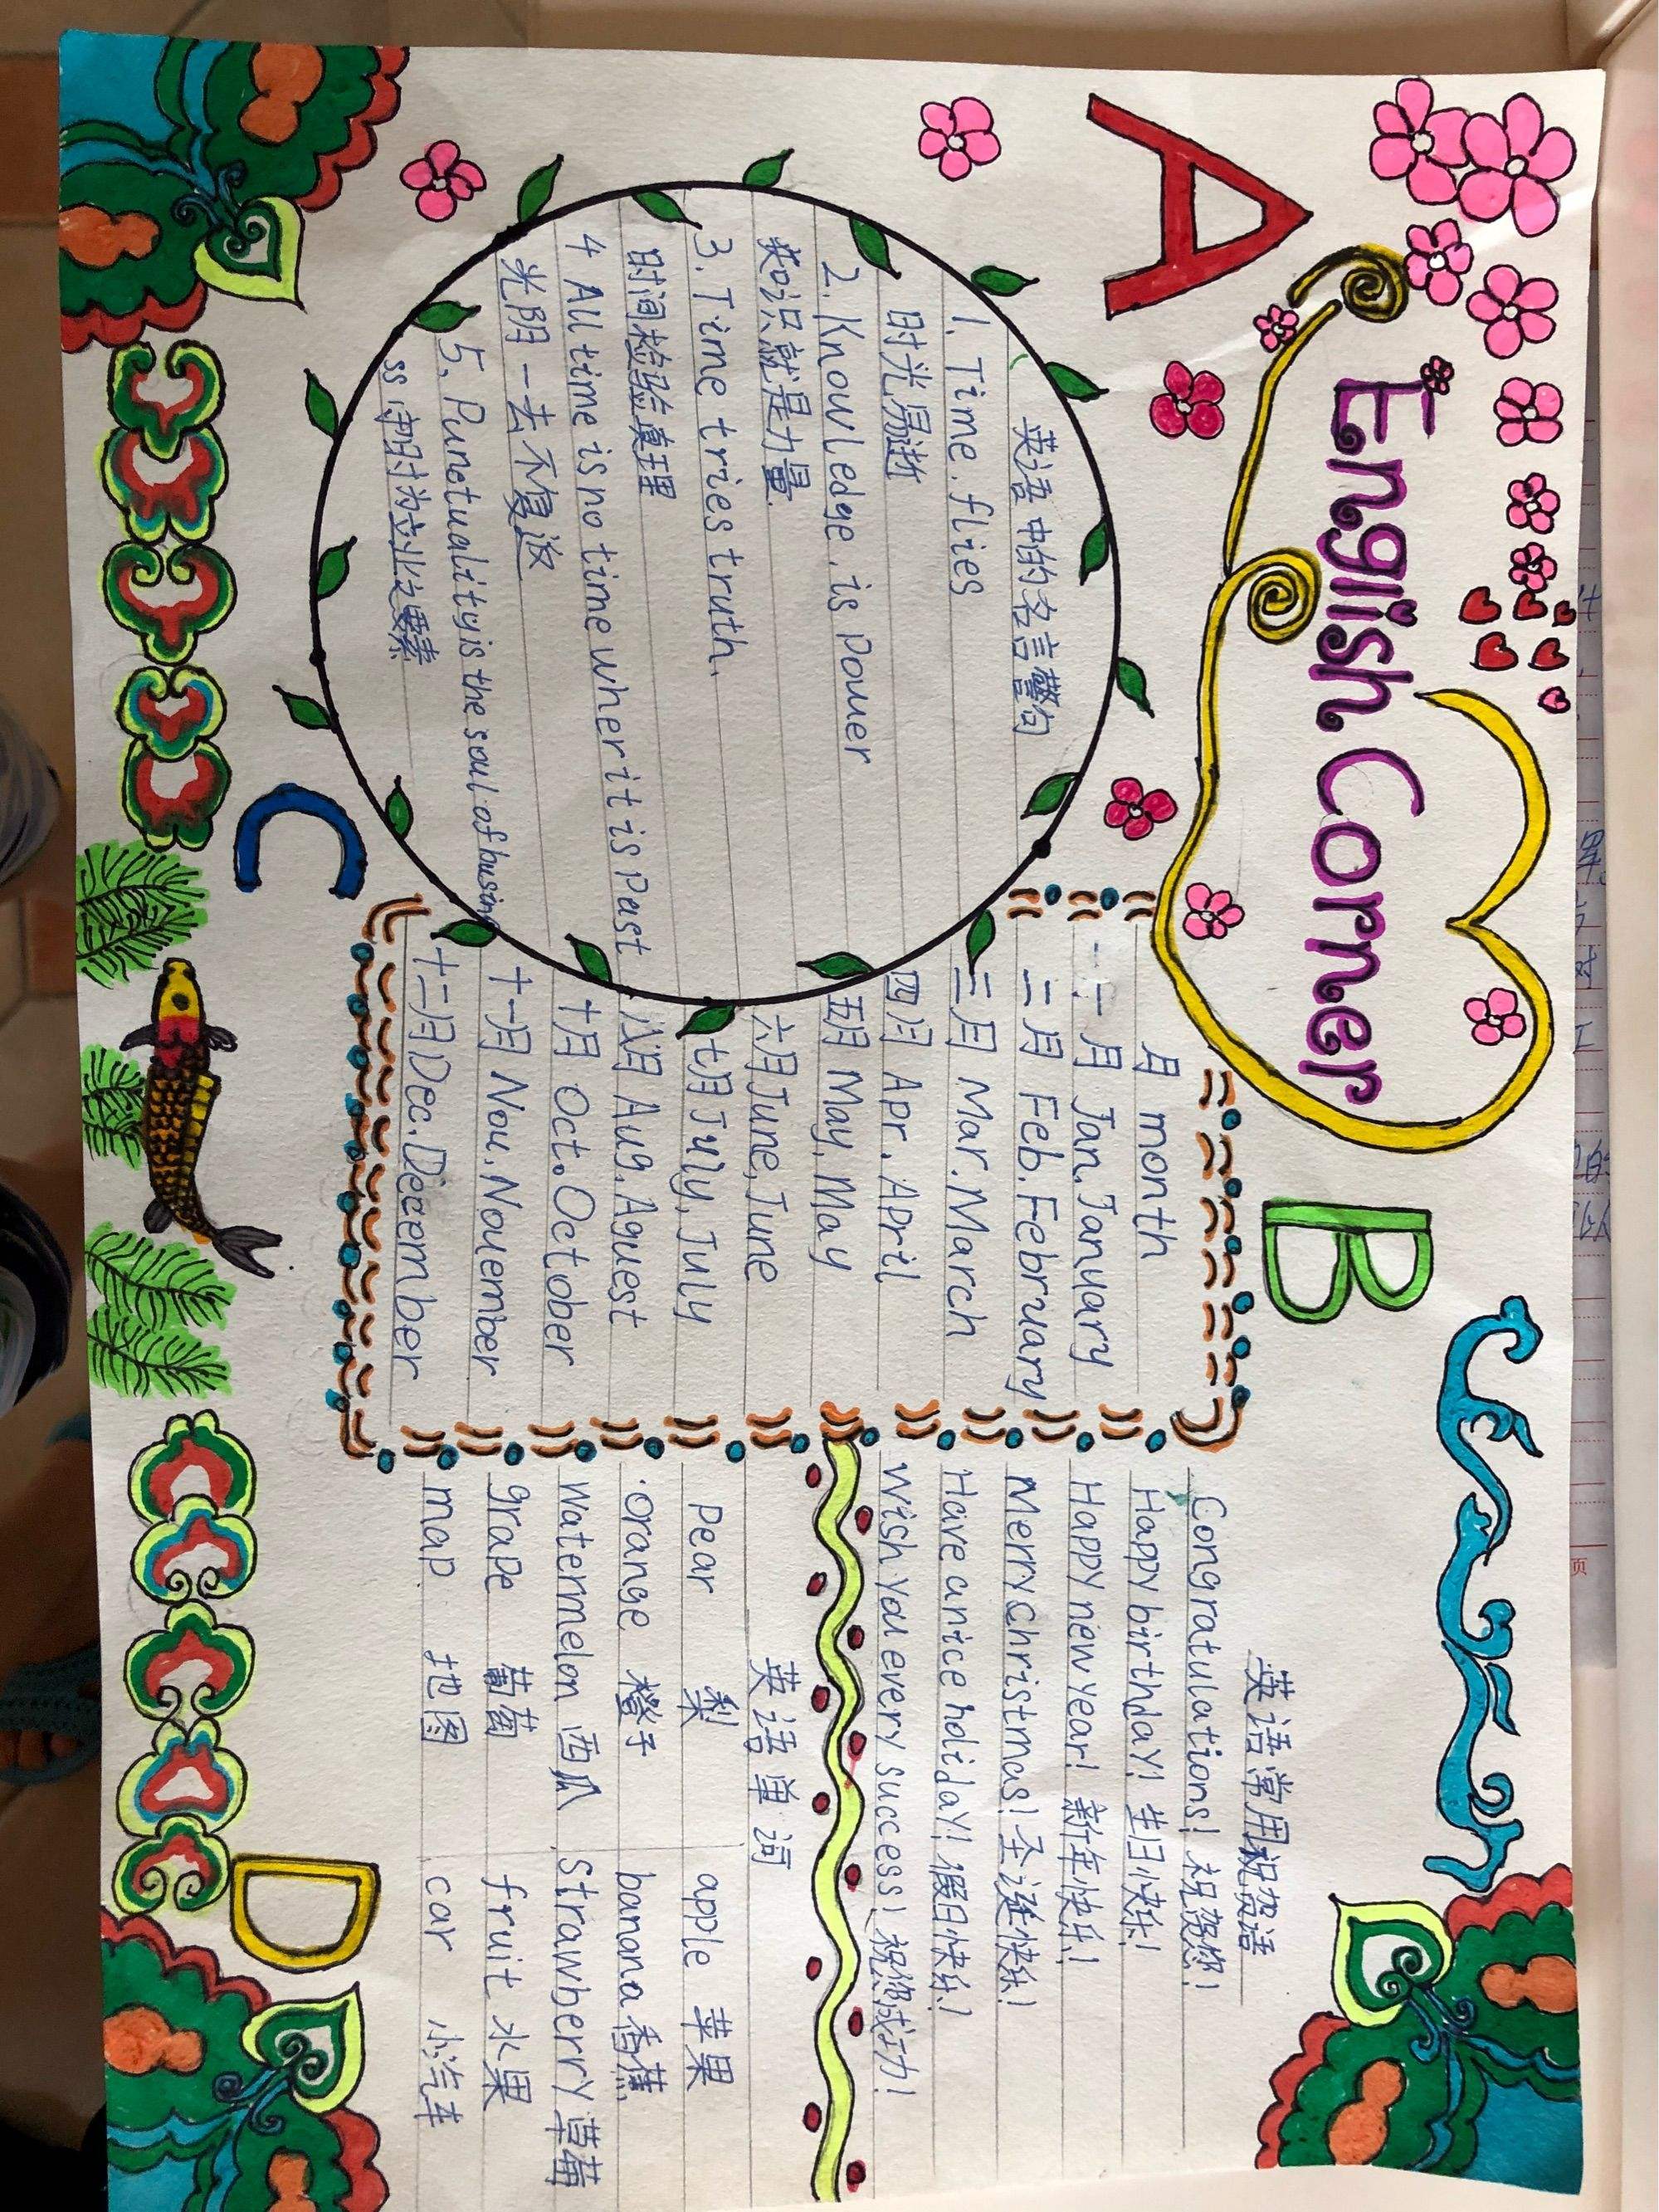 A
English Corner
B
英语中的名言警句
1. Time.flies
时光易逝
2. Knowledge.is Pouer
识就是力量.
3. Time tries truth.
时间检验真理
4 All time is no time wheri it is Past
光阴一去不复返
5. Punetuality is the soul of busin
守时为立业之要素
月 month
一月 Jan.January
二月 Feb.February
三月 Mar.March
四月 Apr.April
五月 May.May
六月June,June
七月July,July
八月 Aug.Aguest
十月 Oct.October
十一月 Nou.Nouember
十二月Dec.December
英语常用祝贺语
Congratulations! 祝贺您!
Happy birthdaY! 生日快乐!
Happy new year! 新年快乐!
Merry christmas! 圣诞快乐!
Have a nice holidaY! 假日快乐!
Wish you every success! 祝您成功!
英语单词
Pear 梨 apple 苹果
orange 橙子 banana 香蕉
Watermelon 西瓜 Strawberry 草莓
grape 葡萄 fruit 水果
map. 地图 car 小汽车
C
D